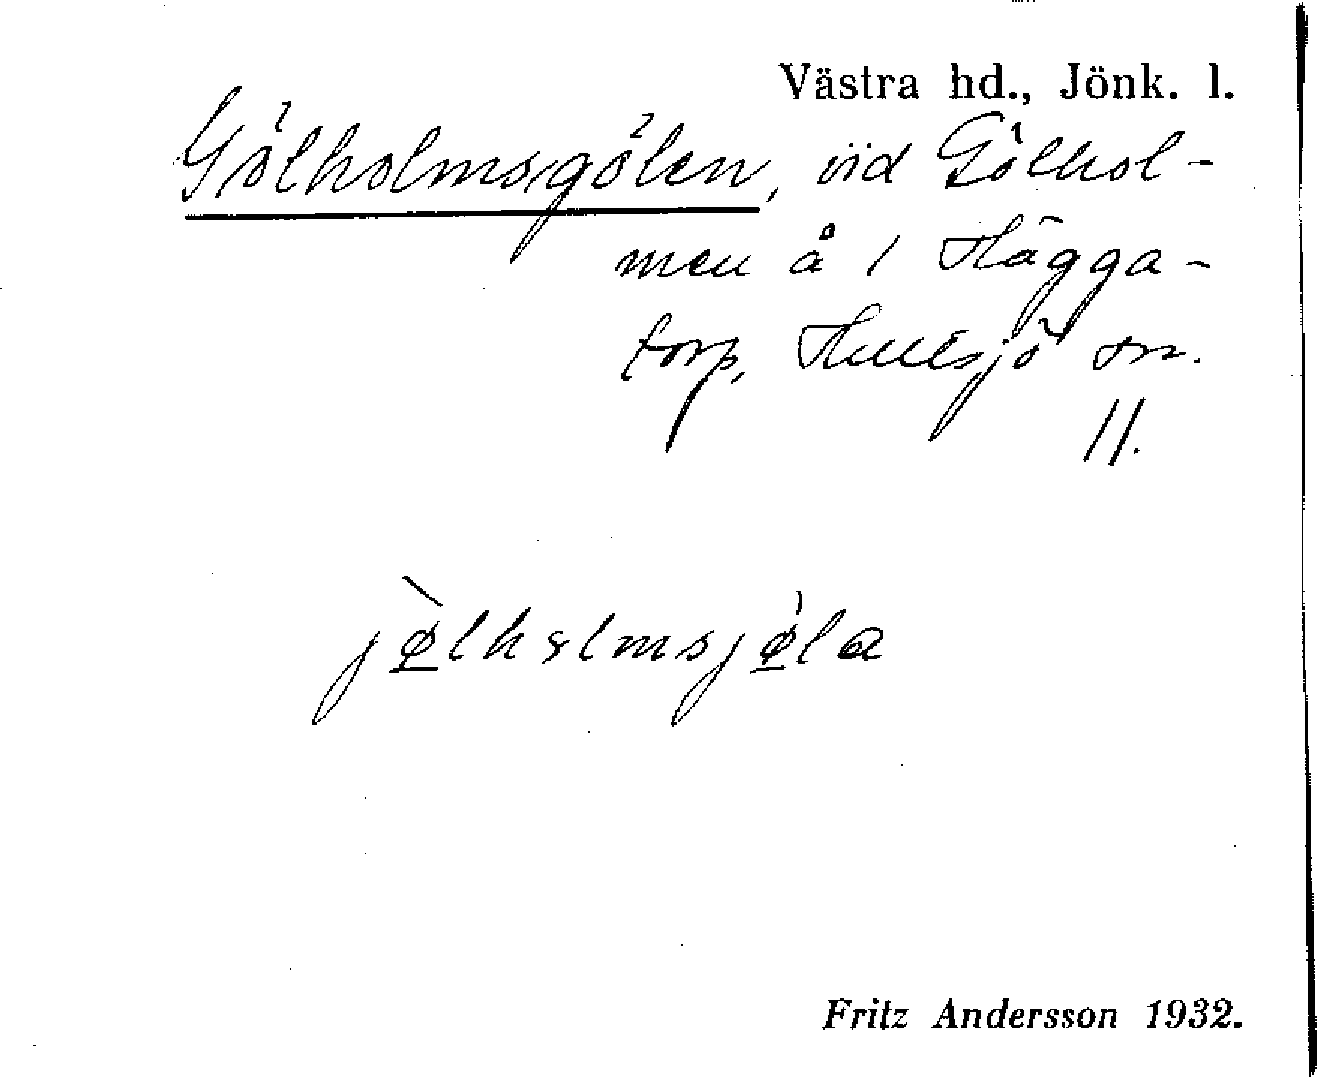 Västra hd., Jönk. l.
Gölholmsgölen, vid Gölhol-
men å 1 Hägga-
torp, Hultsjö sn.
11.
jø̀lhɔlmsjø̀la
Fritz Andersson 1932.